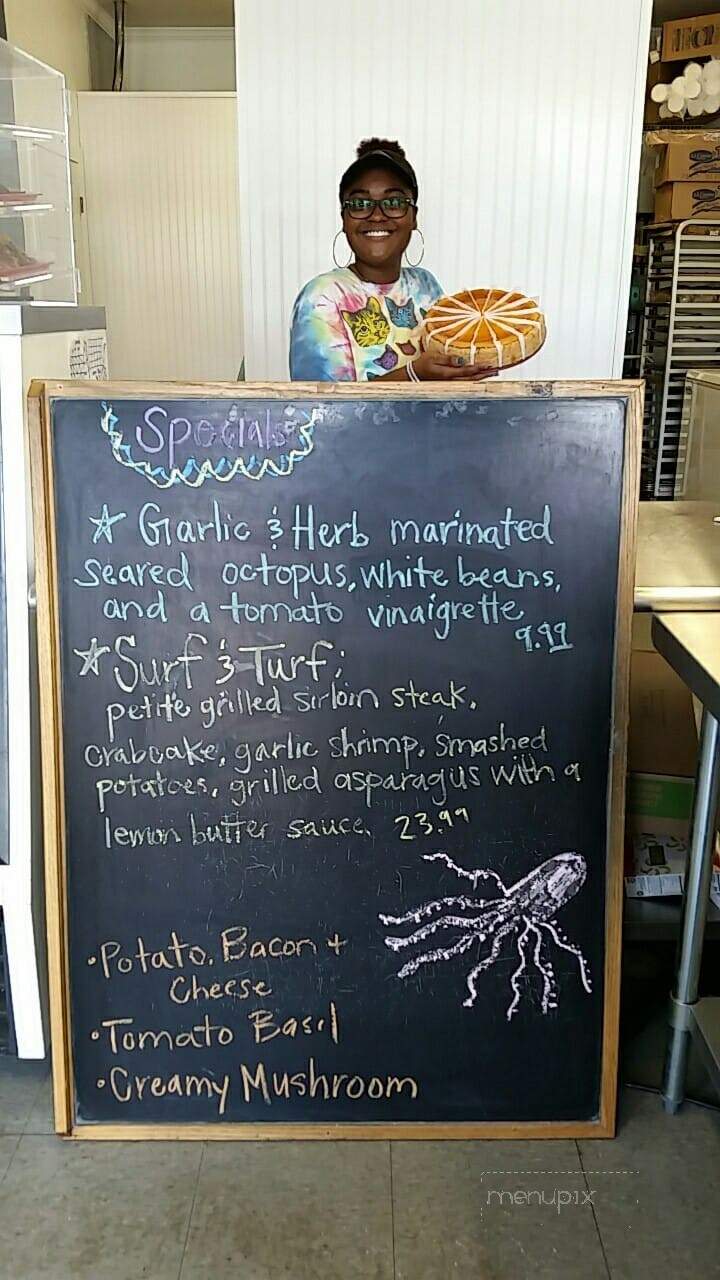 Specials
☆ Garlic & Herb marinated
seared octopus, white beans,
and a tomato vinaigrette
9.99
☆ Surf & Turf:
petite grilled sirloin steak,
crabcake, garlic shrimp, smashed
potatoes, grilled asparagus with a
lemon butter sauce. 23.99
• Potato, Bacon +
Cheese
• Tomato Basil
• Creamy Mushroom
menupix